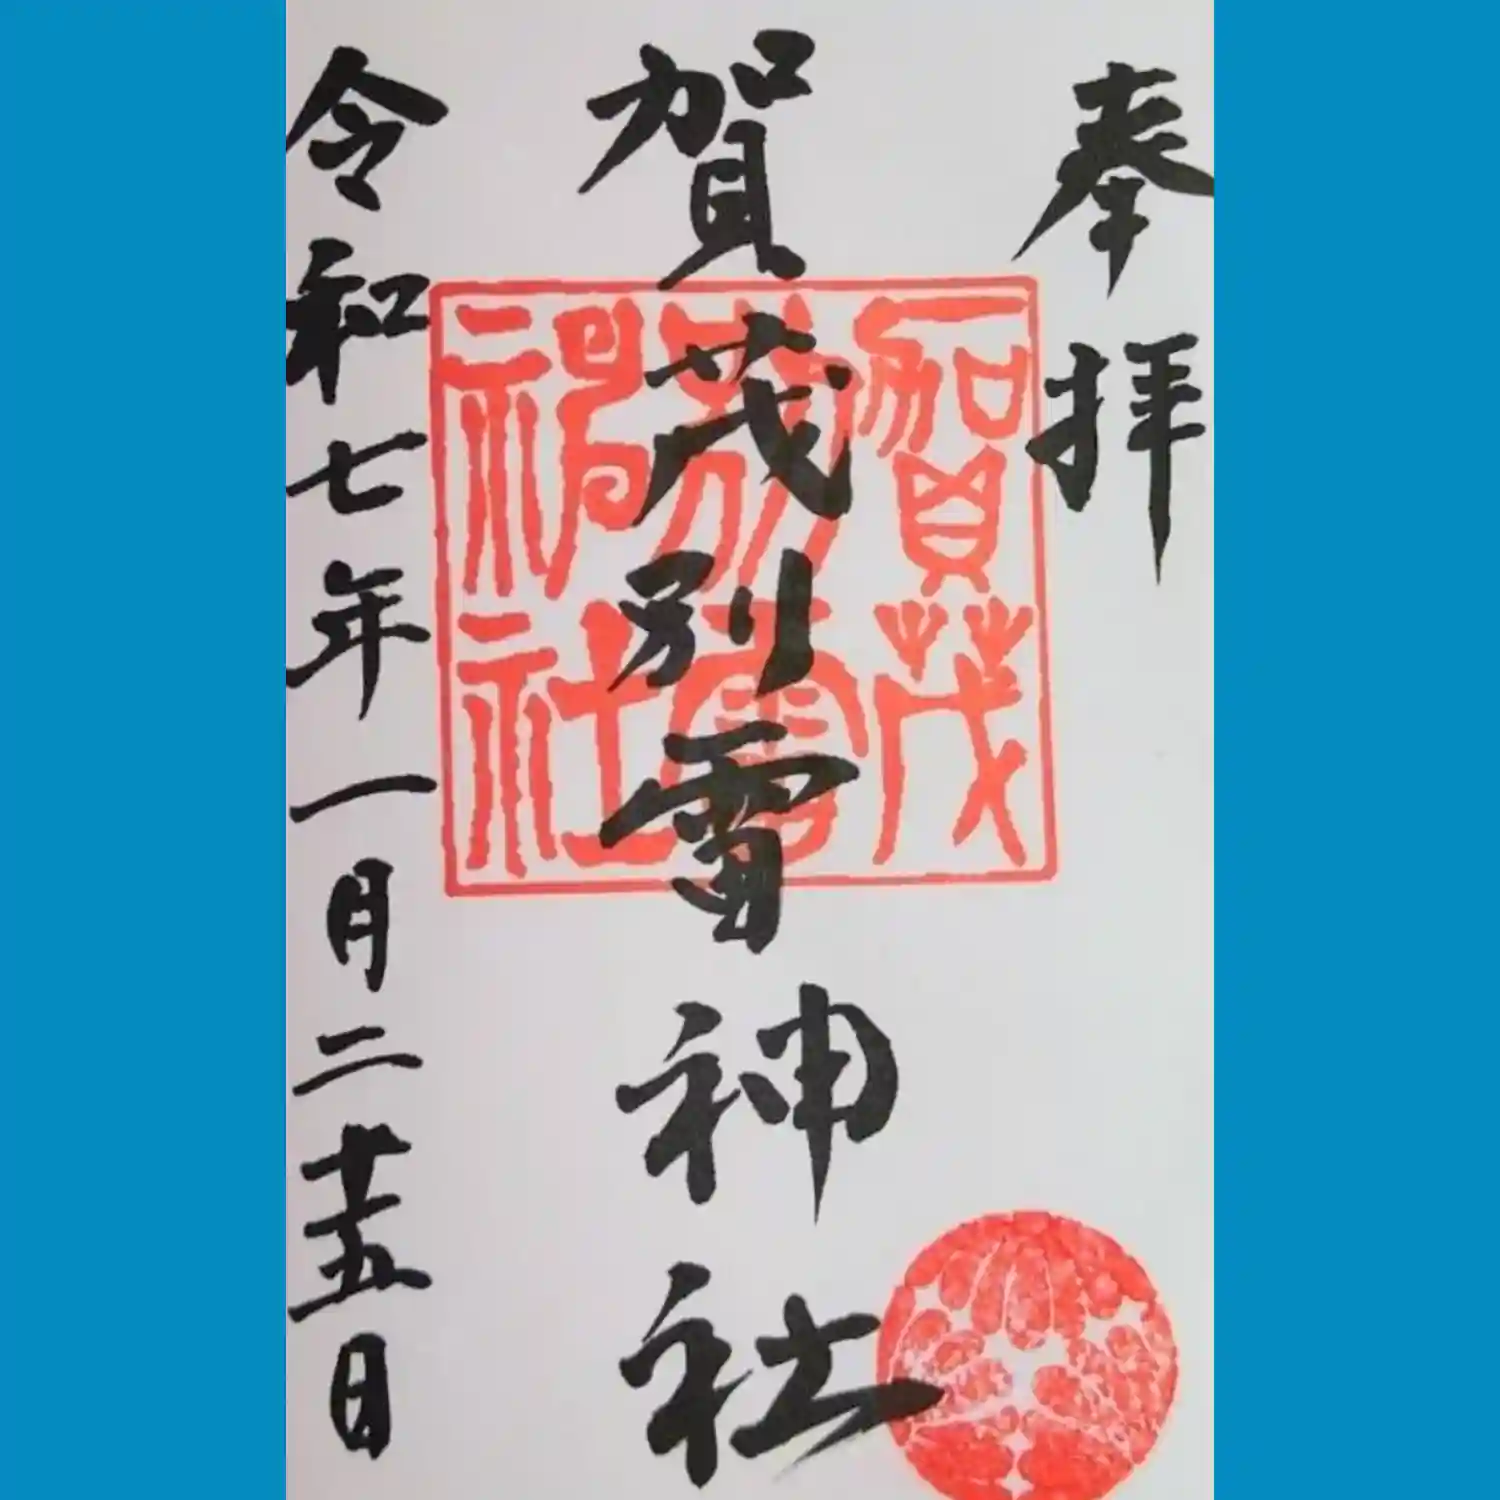 奉拝
賀茂別雷神社
賀茂
別雷
神社
令和七年一月二十五日